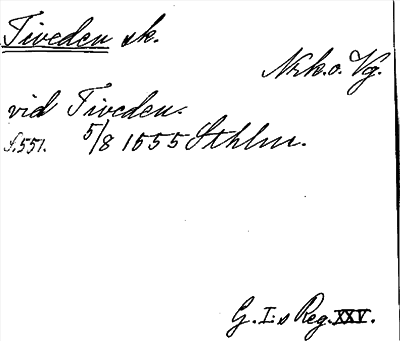 Tiveden sk.
Nrk. o. Vg.
vid Tiveden.
s. 551. 5/8 1555 Sthlm.
G. I:s Reg. XXV.